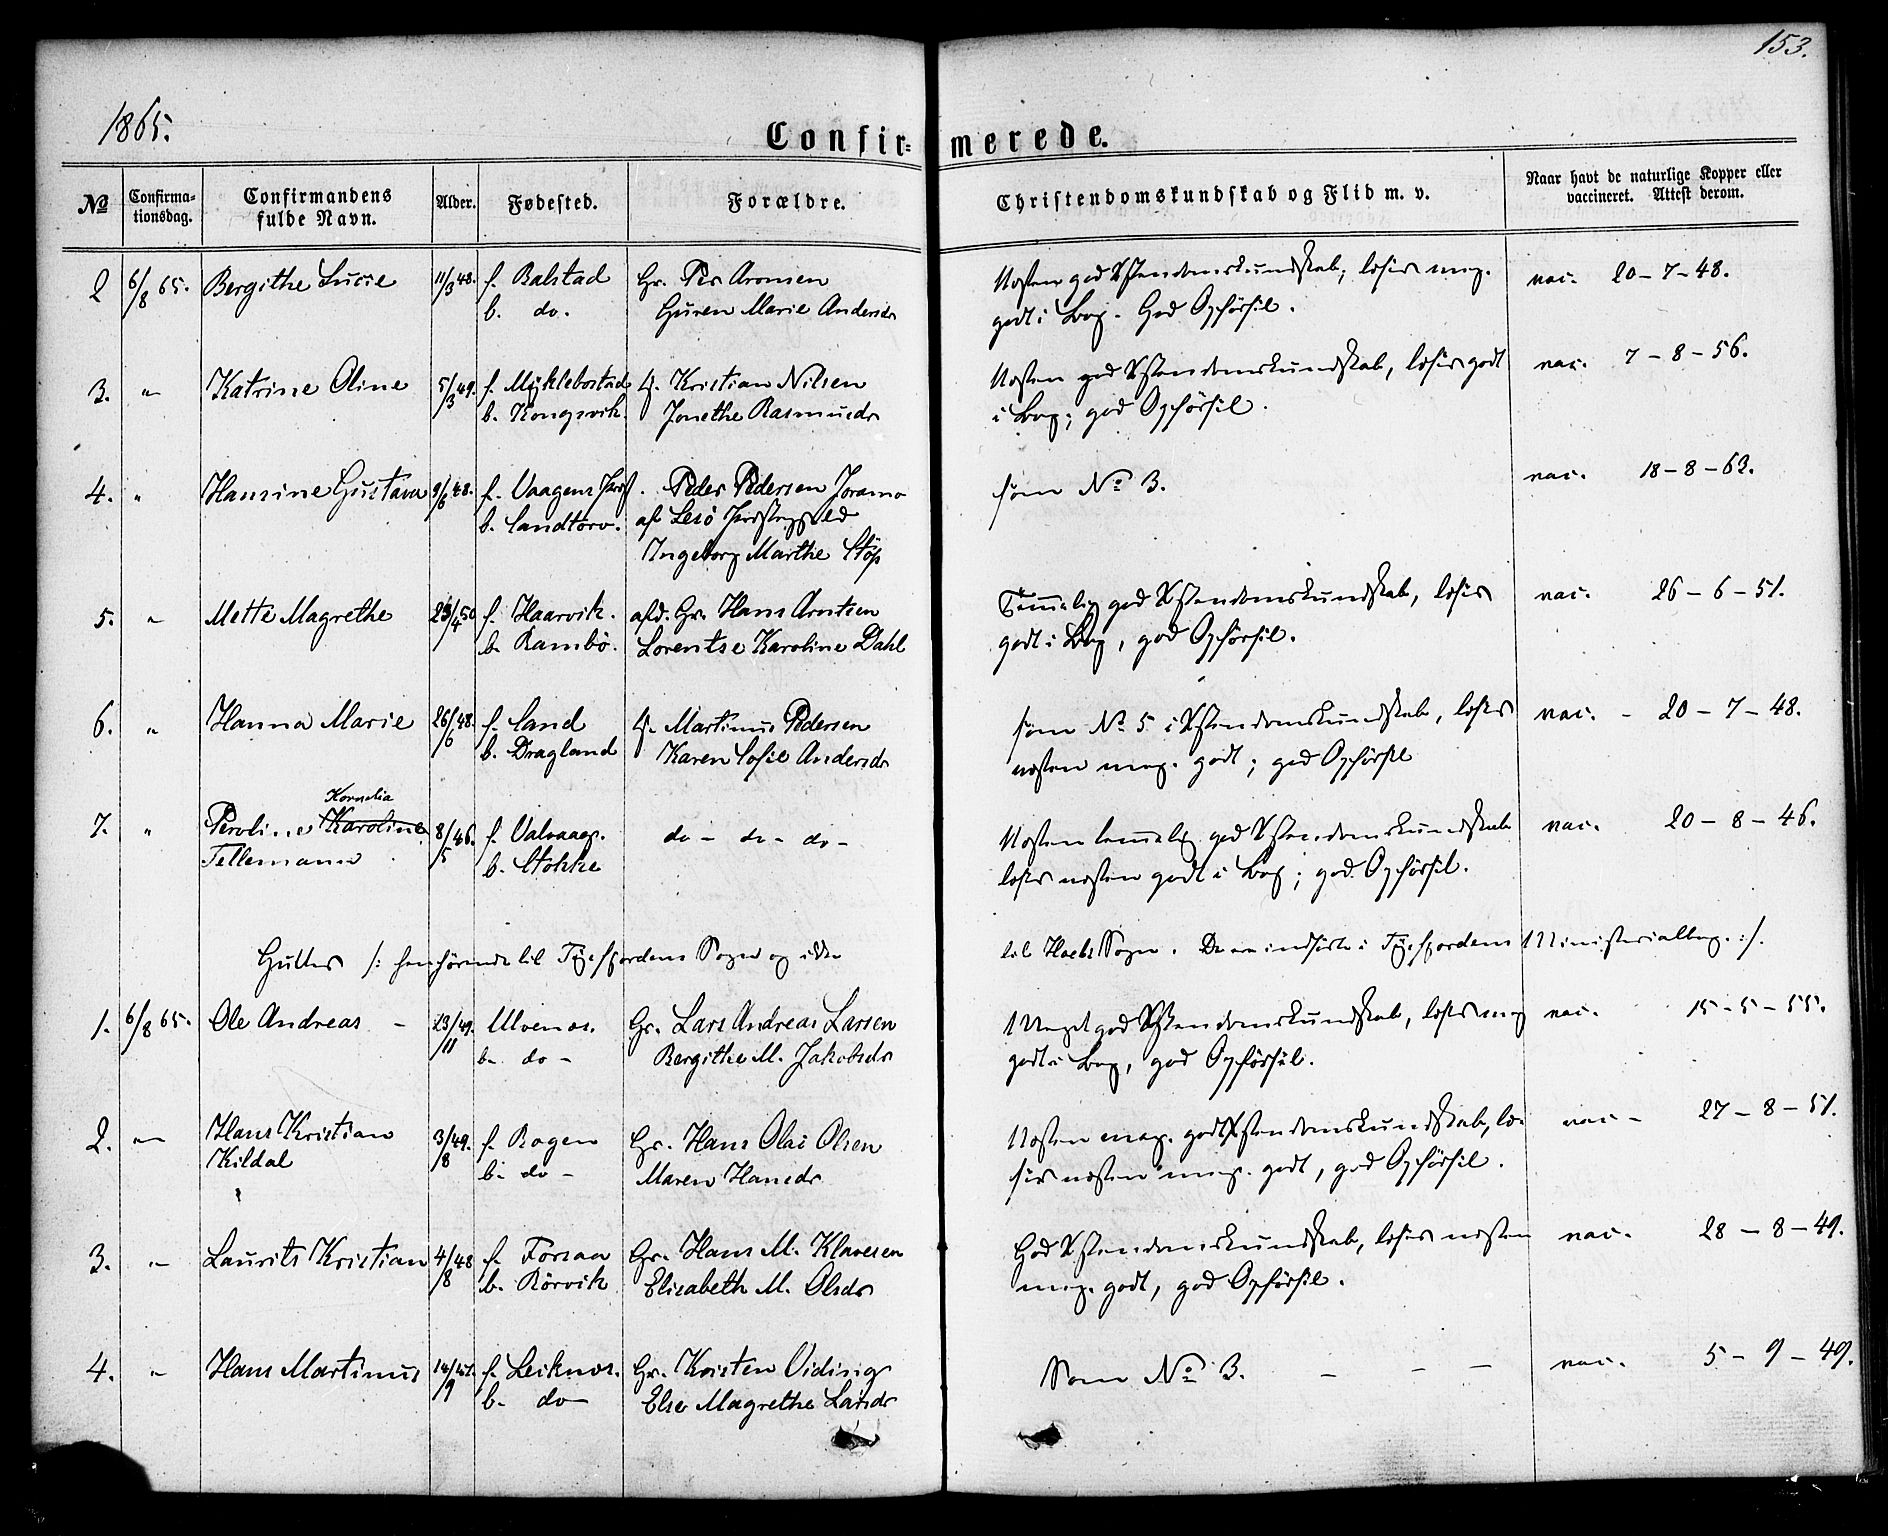 153.
1865.
Confir- merede.
№
Confirma-
tionsdag.
Confirmandens
fulde Navn.
Alder.
Fødested.
Forældre.
Christendomskundskab og Flid m. v.
Naar havt de naturlige Kopper eller
vaccineret. Attest derom.
2 6/8 65. Bergithe Lucie 11/3 48. f. Balstad Gr. Per Aronsen Næsten god Xstendomskundskab, læser meg. vac. 20-7-48.
b. do. Guren Marie Andersdr godt i Bog. God Opførsel.
3. " Katrine Oline 5/3 49. f. Myklebostad Kristian Nilsen Næsten god Xstendomskundskab, læser godt vac. 7-8-56.
b. Kongsvik. Jonethe Rasmusdr i Bog; god Opførsel.
4. " Hansine Gustava 9/6 48. f. Vaagens Præstg. Peder Pedersen Joramo som No 3. vac. 18-8-63.
b. Sandtorv. af Lesø Præstegjeld
Ingeborg Marthe Støp
5. " Mette Magrethe 29/4 50 f. Haarvik. afd. Gr. Hans Arntsen Temmelig god Xstendomskundskab, læser vac. 26-6-51.
b. Rambø. Lorentse Karoline Dahl godt i Bog, god Opførsel.
6. " Hanna Marie 26/6 48. f. Sand Martinus Pedersen som No 5 i Xstendomskundskab, læser vac. - 20-7-48.
b. Dragland Karen Sofie Andersdr næsten meg. godt; god Opførsel
Kornelia
7. " Peroline Karoline 8/5 46. f. Valvaag. do - do - do - Næsten temmelig god Xstendomskundskab vac. 20-8-46.
Tellemann b. Stokke læser næsten godt i Bog; god Opførsel.
Gutter /: henhørende til Tysfjordens Sogn og ikke til Sogn. De ere indførte i Tysfjordens Ministerialbog. :/.
1. 6/8 65. Ole Andreas - 23/11 49. Ulvenes. Gr. Lars Andreas Larsen Meget god Xstendomskundskab, læser meg vac. 15-5-55.
b. do - Bergithe M. Jakobsdr godt i Bog, god Opførsel.
2. " Hans Kristian 3/8 49. f. Bogen Gr. Hans Olai Olsen Næsten meg. godt Xstendomskundskab, læ- vac - 27-8-51.
Kildal b. do - Maren Hansdr ser næsten meg. godt, god Opførsel.
3. " Laurits Kristian 4/8 48 f. Forsaa Gr. Hans M. Klavesen God Xstendomskundskab, læser næsten vac. 28-8-49.
b. Rørvik Elisabeth M. Olsdr meg. godt, god Opførsel.
4. " Hans Martinus 14/9 47. f. Leiknes. Gr. Kristen Viding Som No 3. - - - vac. 5-9-49.
b. do - Else Magrethe Larsdr